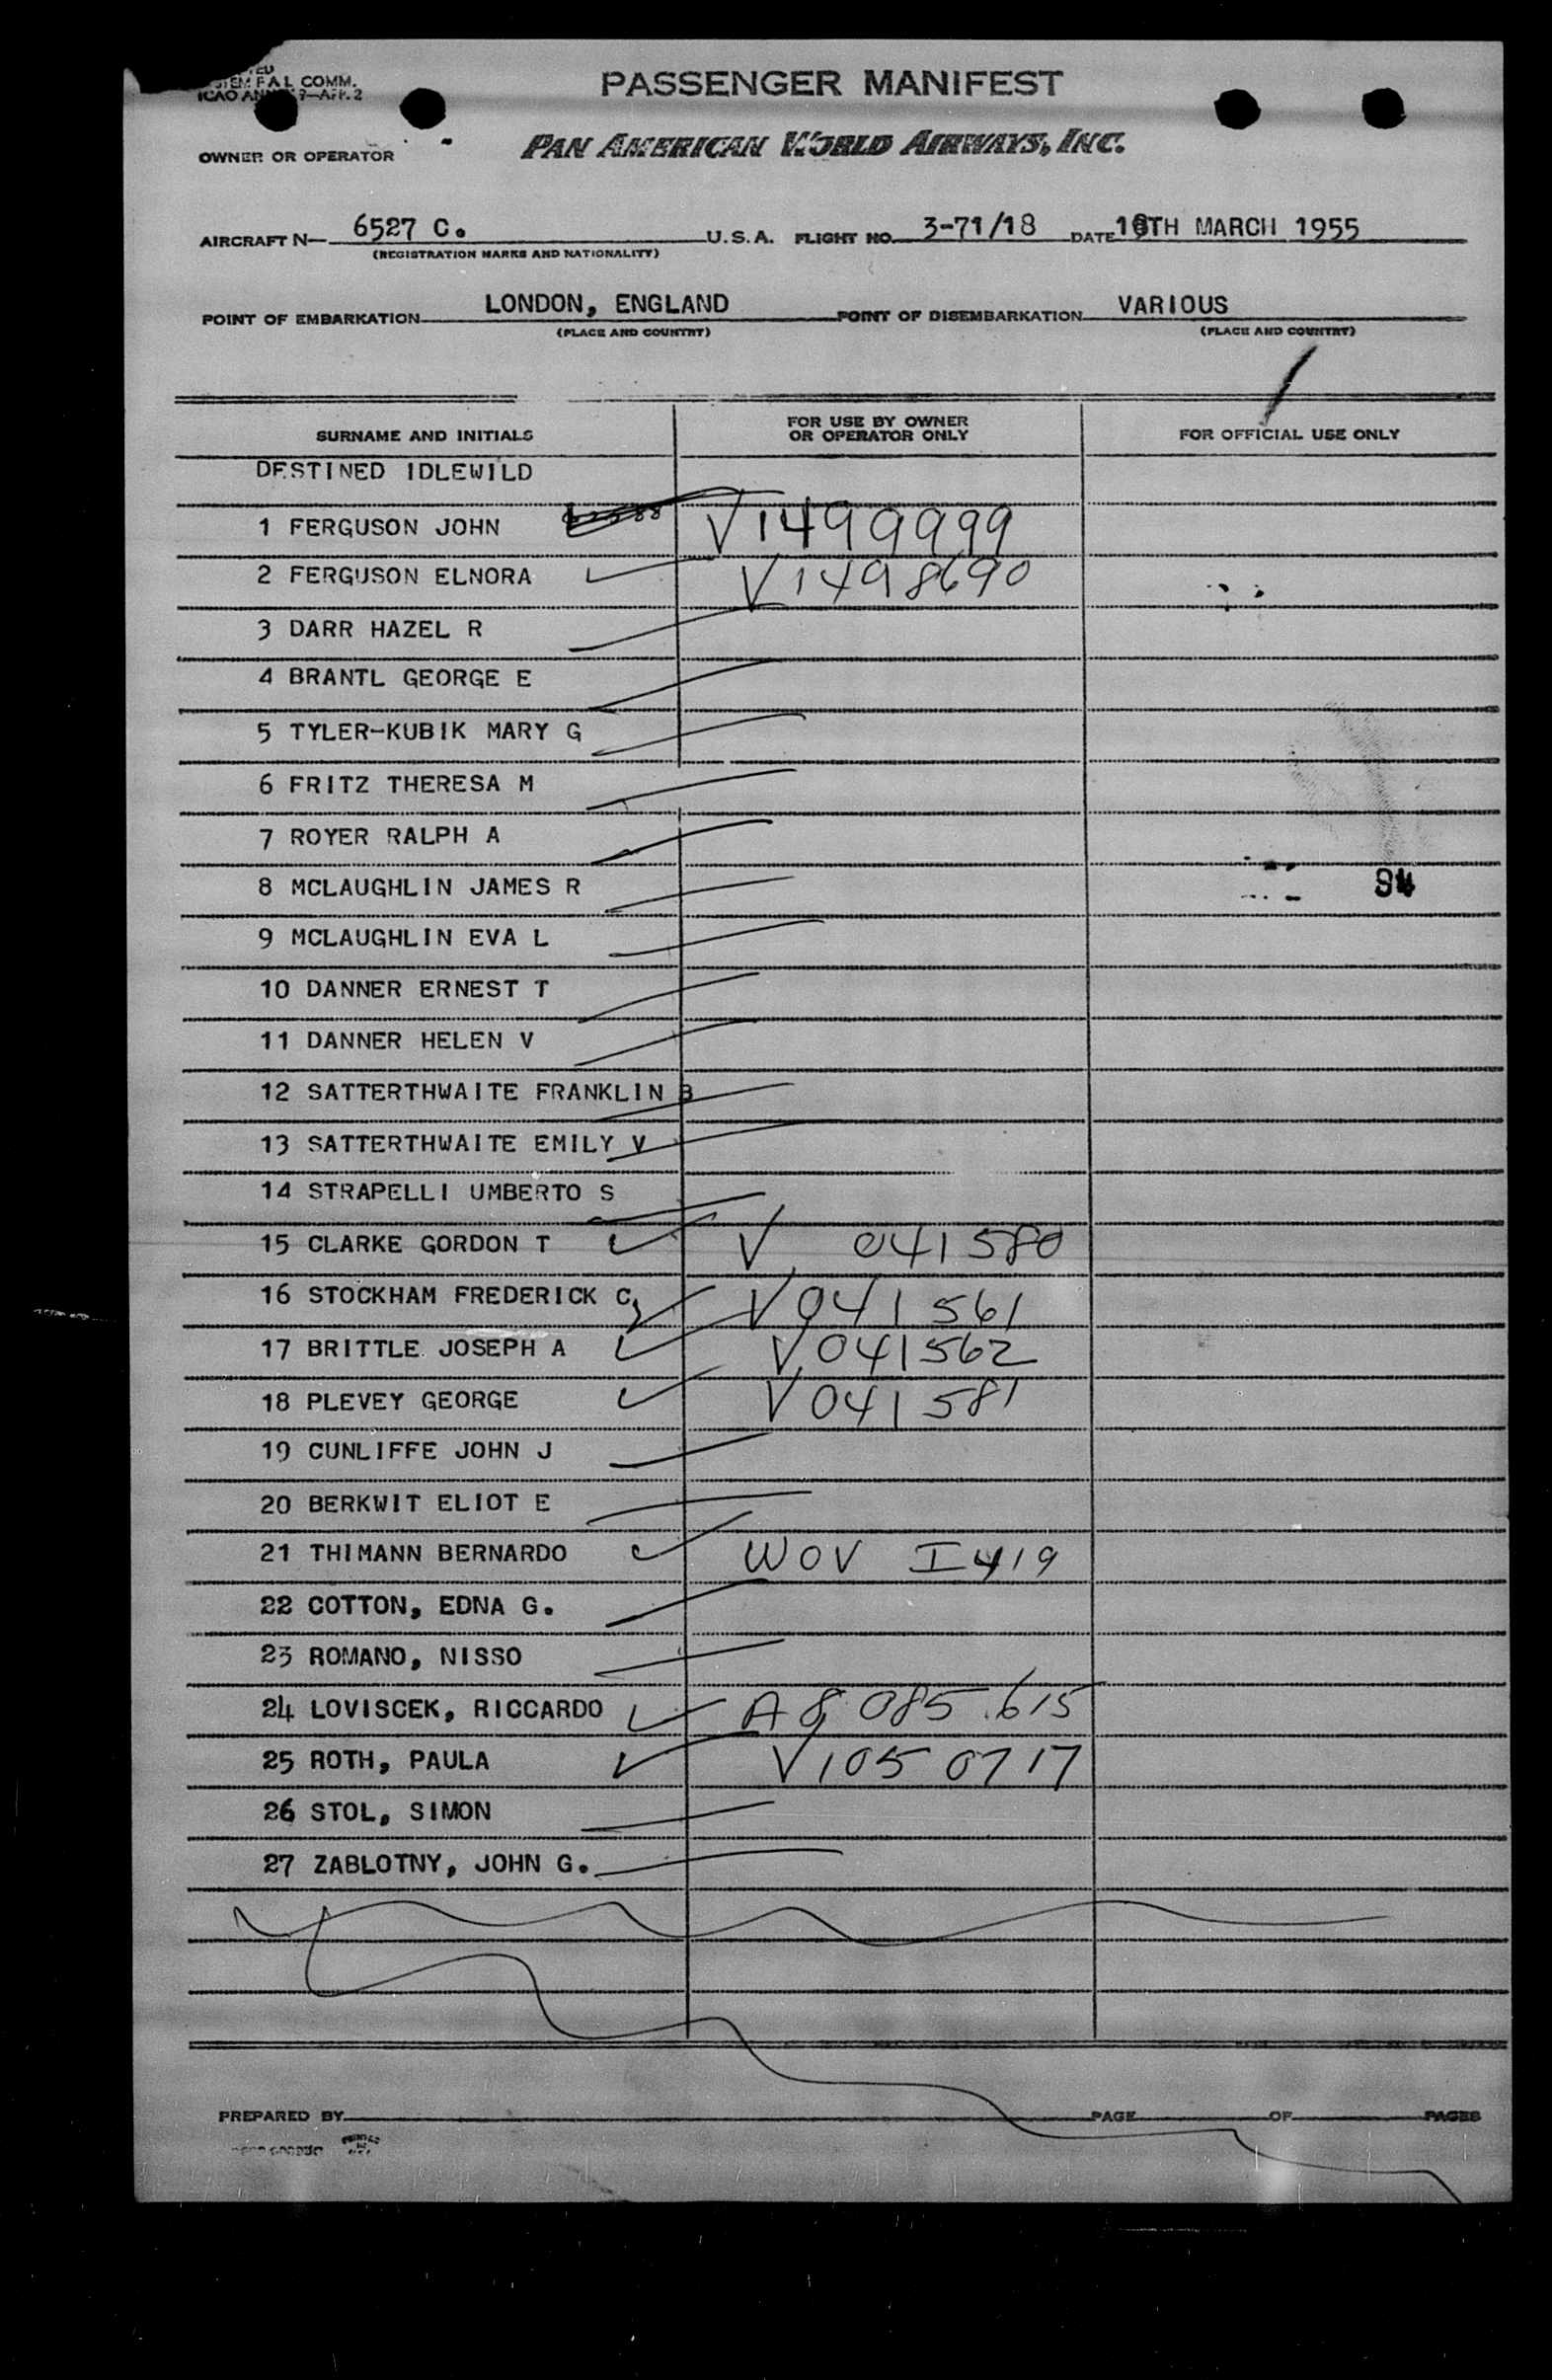 F A L COMM.
PASSENGER MANIFEST
OWNER OR OPERATOR
PAN AMERICAN WORLD AIRWAYS, INC.
AIRCRAFT N— 6527 C. U.S.A. FLIGHT NO. 3-71/18 DATE MARCH 1955
(REGISTRATION MARKS AND NATIONALITY)
POINT OF EMBARKATION LONDON, ENGLAND POINT OF DISEMBARKATION VARIOUS
(PLACE AND COUNTRY) (PLACE AND COUNTRY)
SURNAME AND INITIALS FOR USE BY OWNER OR OPERATOR ONLY FOR OFFICIAL USE ONLY
DESTINED IDLEWILD
1 FERGUSON JOHN V1499999
2 FERGUSON ELNORA V1498690
3 DARR HAZEL R
4 BRANTL GEORGE E
5 TYLER-KUBIK MARY G
6 FRITZ THERESA M
7 ROYER RALPH A
8 MCLAUGHLIN JAMES R
9 MCLAUGHLIN EVA L
10 DANNER ERNEST T
11 DANNER HELEN V
12 SATTERTHWAITE FRANKLIN B
13 SATTERTHWAITE EMILY V
14 STRAPELLI UMBERTO S
15 CLARKE GORDON T V 041580
16 STOCKHAM FREDERICK C V041561
17 BRITTLE JOSEPH A V041562
18 PLEVEY GEORGE V041581
19 CUNLIFFE JOHN J
20 BERKWIT ELIOT E
21 THIMANN BERNARDO WOV I419
22 COTTON, EDNA G.
23 ROMANO, NISSO
24 LOVISCEK, RICCARDO A8 085 615
25 ROTH, PAULA V1050717
26 STOL, SIMON
27 ZABLOTNY, JOHN G.
PREPARED BY PAGE OF PAGES